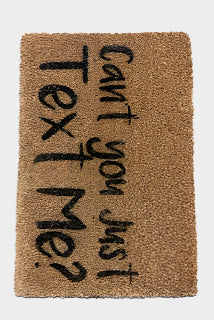 Can't you Just
Text Me?